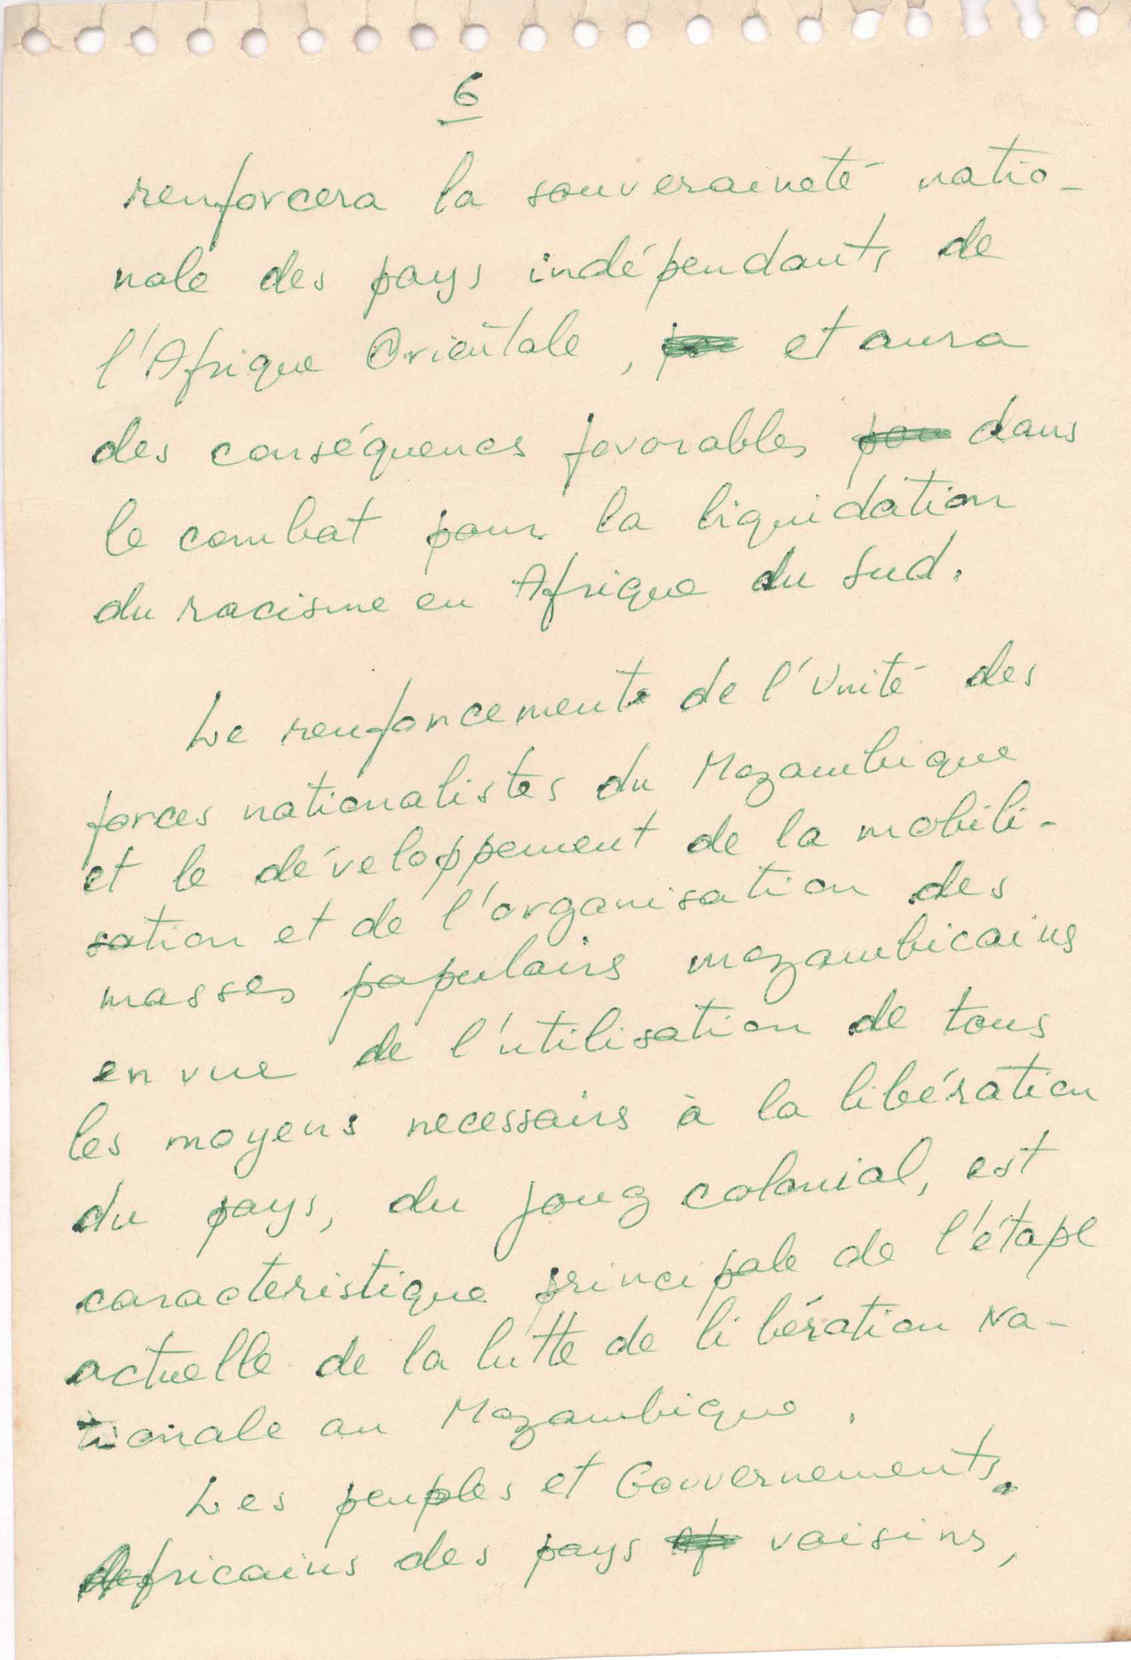 6
renforcera la souveraineté natio-
nale des pays indépendants de
l'Afrique Orientale, et aura
des conséquences favorables dans
le combat pour la liquidation
du racisme en Afrique du Sud.
Le renforcement de l'Unité des
forces nationalistes du Mozambique
et le développement de la mobili-
sation et de l'organisation des
masses populairs mozambicains
en vue de l'utilisation de tous
les moyens necessairs à la libération
du pays, du joug colonial, est
caracteristique principale de l'étape
actuelle de la lutte de libération Na-
tionale au Mozambique.
Les peuples et Gouvernements
Africains des pays voisins,